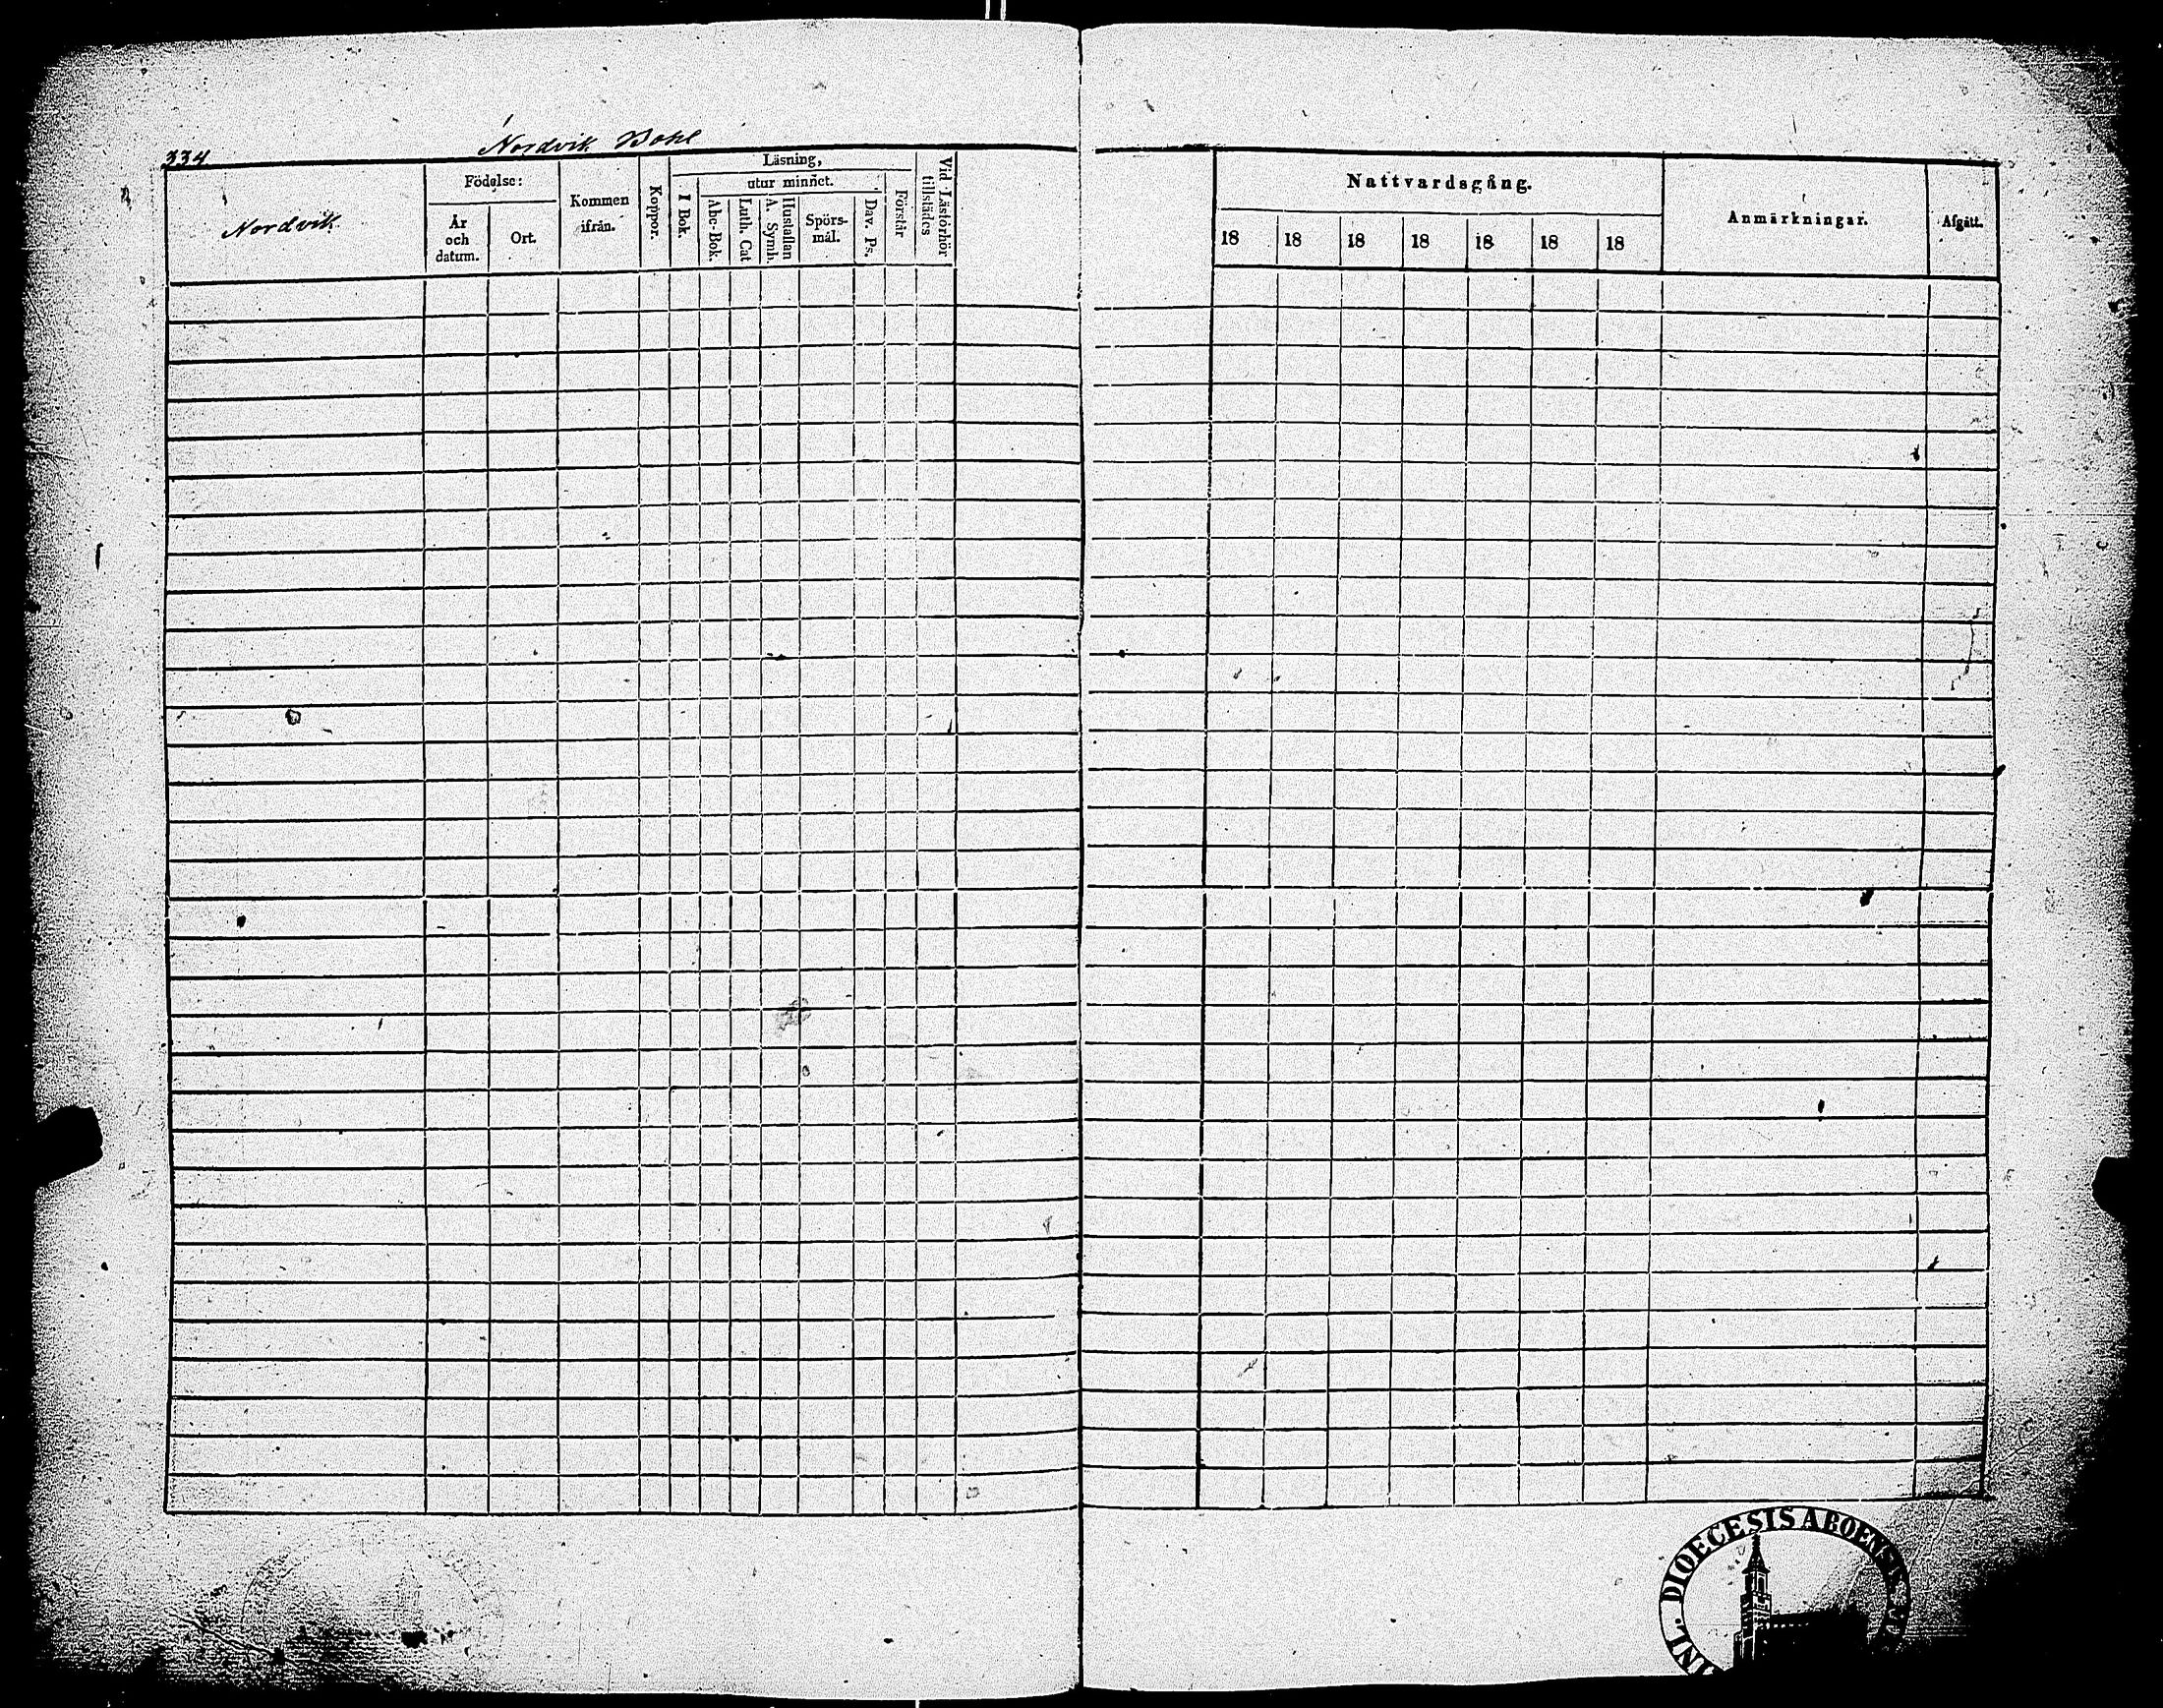 334.
Nordvik Bohl
Nordvik
Födelse:
År
och
datum.
Ort.
Kommen
ifrån.
Koppor.
Läsning,
utur minnet.
I Bok.
Abc-Bok.
Luth. Cat
A. Symb.
Hustaflan
Spörs-
mål.
Dav. Ps.
Förstår
Vid Läsförhör
tillstädes
Nattvardsgång.
18 18 18 18 18 18 18
Anmärkningar.
Afgått.
DIOECESIS ABOENSIS